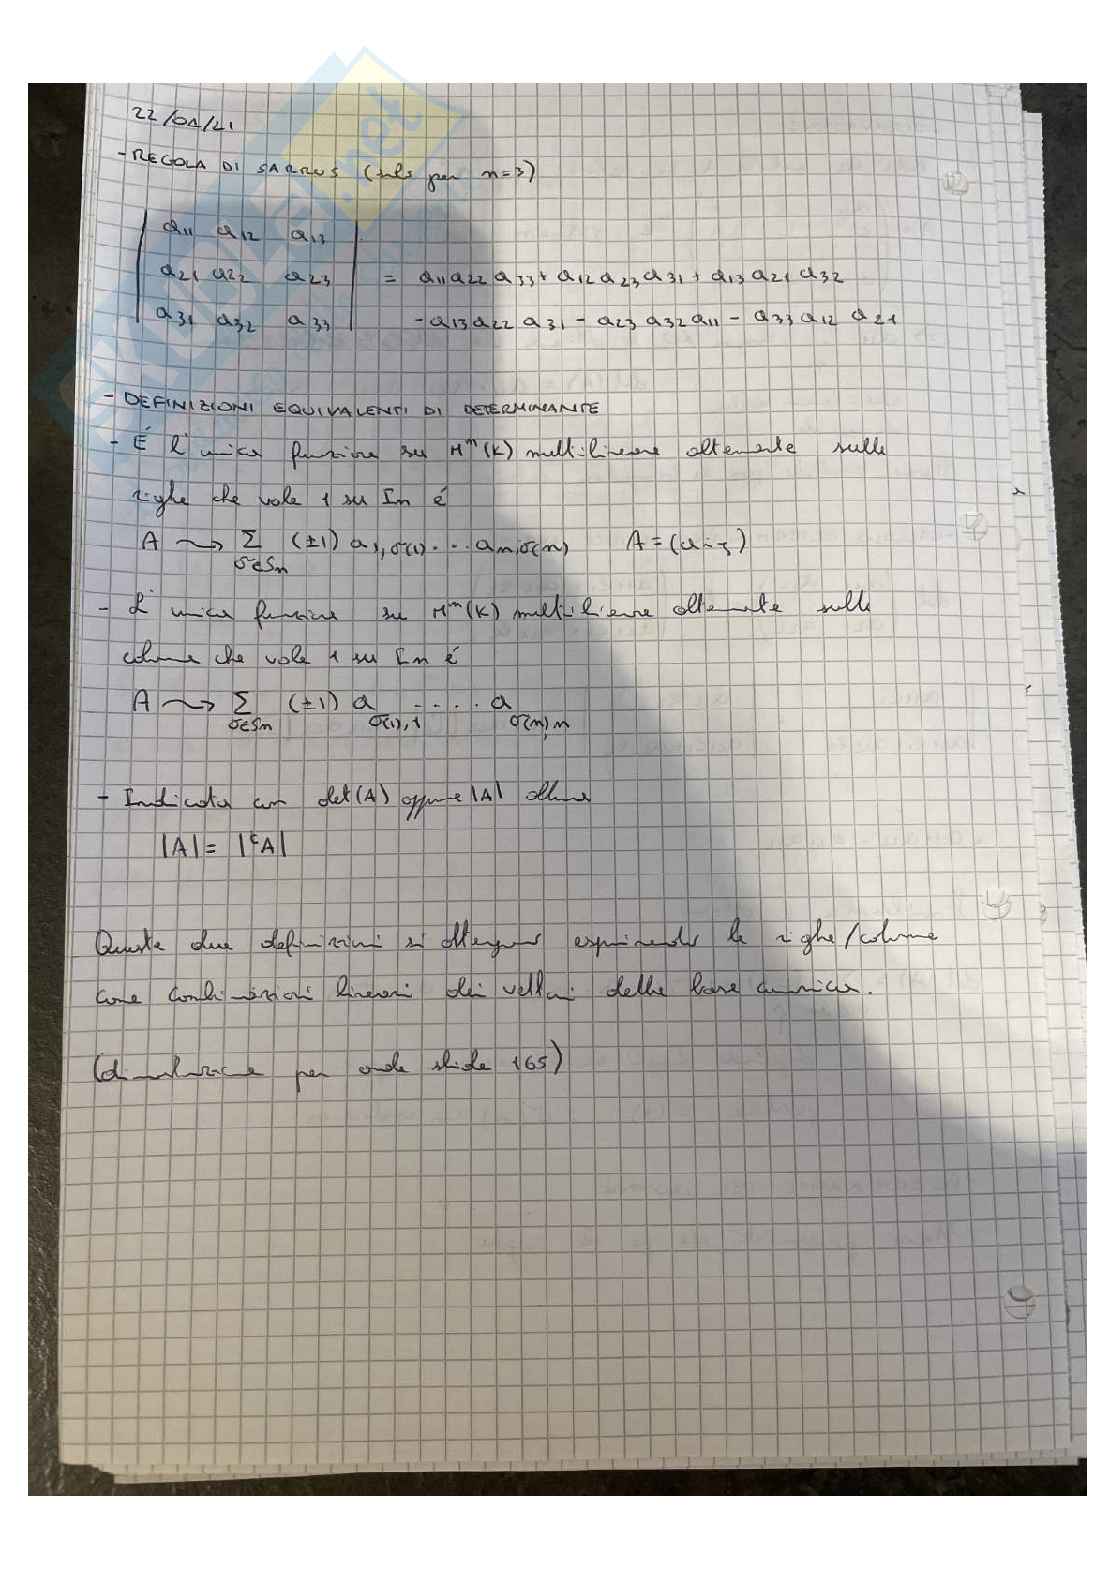 22/01/21
- REGOLA DI SARRUS (solo per n=3)
a11 a12 a13
a21 a22 a23 = a11 a22 a33 + a12 a23 a31 + a13 a21 a32
a31 a32 a33 - a13 a22 a31 - a23 a32 a11 - a33 a12 a21
- DEFINIZIONI EQUIVALENTI DI DETERMINANTE
- É l'unica funzione su Mⁿ(K) multilineare alternante sulle
righe che vale 1 su In é
A ⇝ Σ σ∈Sn (±1) a1,σ(1) ... an,σ(n) A = (aij)
- L'unica funzione su Mⁿ(K) multilineare alternante sulle
colonne che vale 1 su In é
A ⇝ Σ σ∈Sn (±1) a σ(1),1 ..... a σ(n),n
- Indicata con det(A) oppure |A| allora
|A| = |ᵗA|
Queste due definizioni si ottengono esprimendo le righe/colonne
come combinazioni lineari dei vettori della base canonica.
(dimostrazione per slide 165)
SKUOLA.net